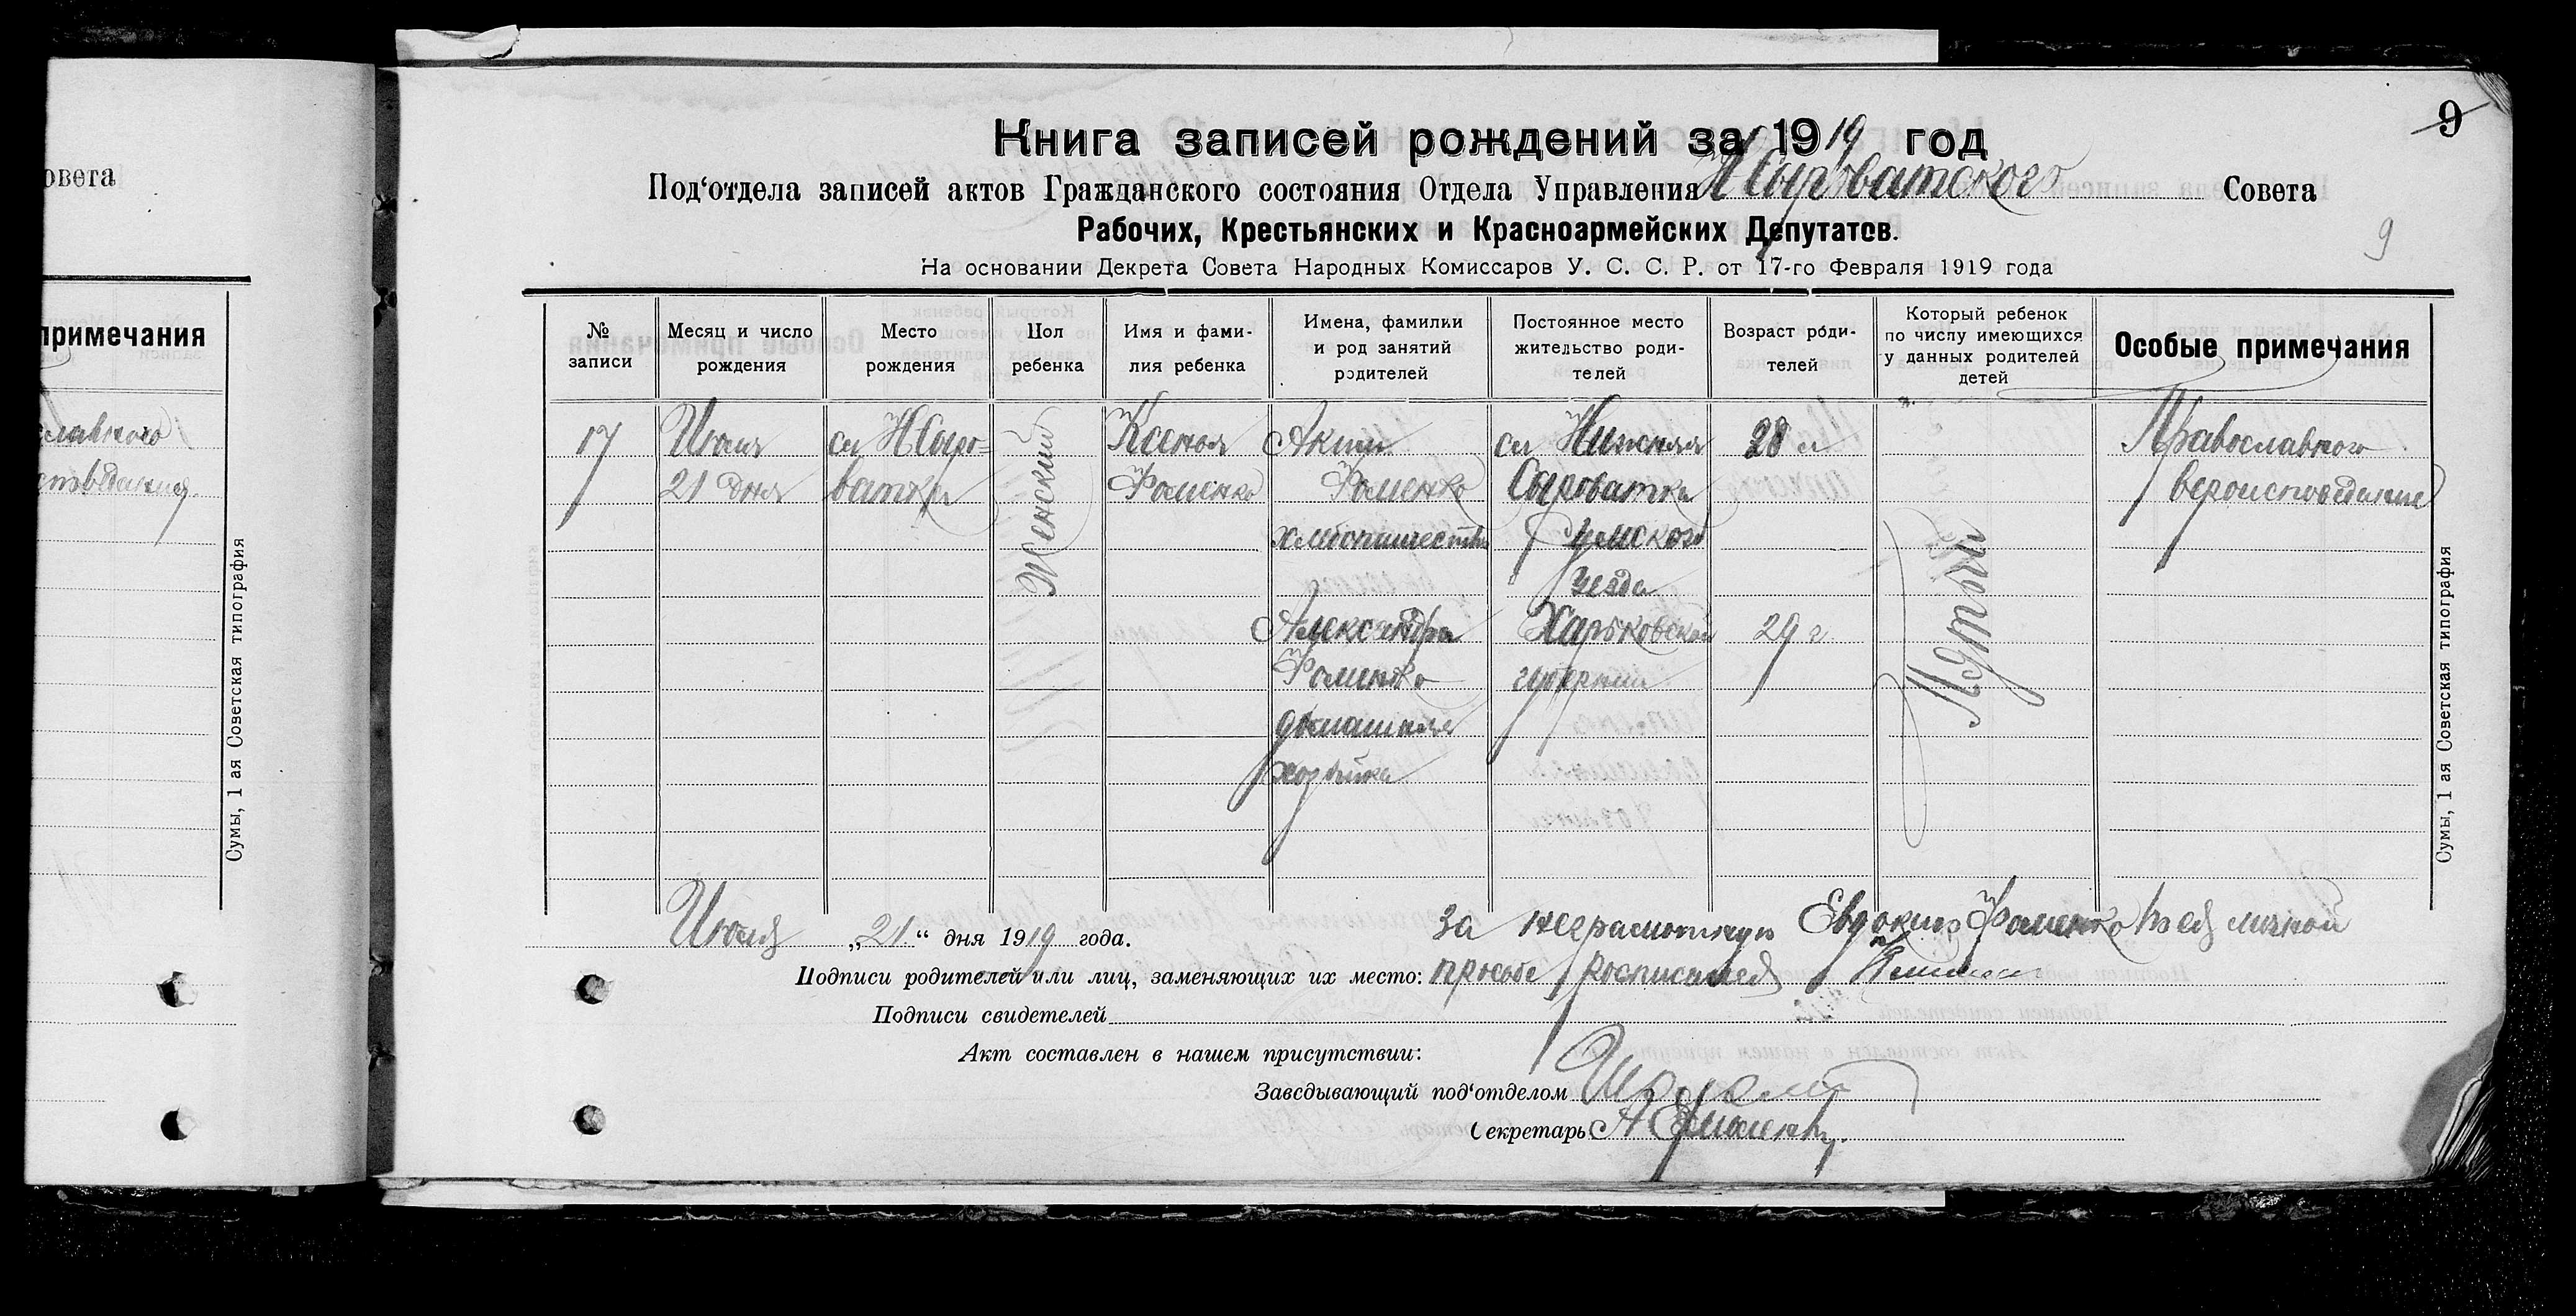 овета
примечания
славного
споведания
Сумы, 1 ая Советская типография
9
Книга записей рождений за 1919 год
Под‘отдела записей актов Гражданского состояния Отдела Управления Н Сыроватского Совета
Рабочих, Крестьянских и Красноармейских Депутатов.
9
На основании Декрета Совета Народных Комиссаров У. С. С. Р. от 17-го Февраля 1919 года
№ записи
Месяц и число рождения
Место рождения
Пол ребенка
Имя и фамилия ребенка
Имена, фамилии и род занятий родителей
Постоянное место жительство родителей
Возраст родителей
Который ребенок по числу имеющихся у данных родителей детей
Особые примечания
17
Июля
21 дня
сл Н Сыро=
ватка
Женский
Ксения
Фоменко
Аким
Фоменко
хлебопашество
Александра
Фоменко
домашняя
хозяйка
сл Нижняя
Сыроватка
Сумского
уезда
Харьковской
губернии
28 л
29 г
Пятый
Православного
вероисповедания
Сумы, 1 ая Советская типография
Июля „21“ дня 1919 года.
За неграмотную Евдокию Фоменко по ея личной
Подписи родителей или лиц, заменяющих их место: просьбе росписался
Подписи свидетелей
Акт составлен в нашем присутствии:
Заведывающий под‘отделом
Секретарь А